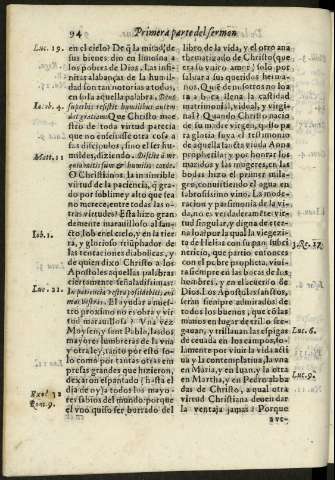 94 Primera parte del sermon
Luc. 19.
en el cielo? De q̃ la mitad de
sus bienes dio en limosna a
los pobres de Dios. Las infi-
nitas alabanças de la humil-
dad son tan notorias a todos,
en sola aquella palabra. Deus
Iacob. 4.
superbis resistit humilibus autem
dat gratiam. Que Christo mae-
stro de toda virtud parecia
que no enseñasse otra cosa a
sus discipulos, sino el ser hu-
Matt. 11
mildes, diziendo. Discite à me
quia mitis sum & humilis corde.
O Christianos la invincible
virtud de la paciencia, q̃ gra-
do tan sublime y alto que sea
no merece, entre todas las o-
tras virtudes? Esta hizo gran-
demente maravilloso al san-
Iob. 1.
cto Iob, venerable en la tier
ra, y glorioso triũphador de
las tentaciones diabolicas, y
de quien dixo Christo a los
Apostoles aquellas palabras
ciertamente señaladissimas:
Luc. 21.
In patientia vestra possidebitis ani
mas vestras. El ayudar a nues-
tro proximo no es obra y vir
tud maravillosa? Vna vez
Moysen, y sant Pablo, las dos
mayores lumbreras de la vna
y otra ley, tanto por esto so-
lo como por tantas otras em
presas grandes que hizieron,
dexaron espantado (hasta el
dia de oy) a todos los mayo-
Exo. 32
res sabios del mundo: porque
Rom. 9.
el vno quiso ser borrado del
libro de la vida, y el otro ana
thematizado de Christo (que
era su vnico amor) solo por
salvar a sus queridos herma-
nos. Que santo no loa
a boca llena la castidad
matrimonial, vidual, y virgi-
nal? Quando Christo nacio
de su madre virgen, quiso pa
ra gloria suya el trisumo de
aquella santa viuda Anna
prophetissa: y por honrar los
maridos y las mugeres, en las
bodas hizo el primer mila-
gro, convirtiendo el agua en
sabrosissimo vino. La mode-
racion y parsimonia de la vi-
da, no es verdaderamẽte vir-
tud singular, y digna de eter-
na loor por la qual la viegezi-
3. Re. 17.
ta de Helias con su pan subci
nericio, que partio entonces
con el pobre propheta, vivi-
ra siempre en las bocas de los
hombres, y en el acatamiento
Dios. Los Apostoles sanctos,
seran siempre admirados de
todos los buenos, que cõ las
manos en lugar de trillo se-
Luc. 6.
gauan, y trillauan las espigas
de ceuada en los campos, so-
lamente por viuir la vida acti
va y la contemplatiua, la vna
en Maria, y en Iuan, y la otra
Luc. 9.
en Martha, y en Pedro abba
das de Christo, a qual otra
virtud Christiana deuen dar
la ventaja jamas? Porque
a ve-